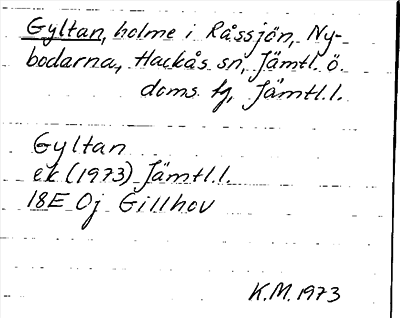 Gyltan, holme i Råssjön, Ny-
bodarna, Hackås sn, Jämtl. ö.
doms. tg, Jämtl.l.
Gyltan
ek (1973) Jämtl.l.
18E 0j Gillhov
K.M. 1973